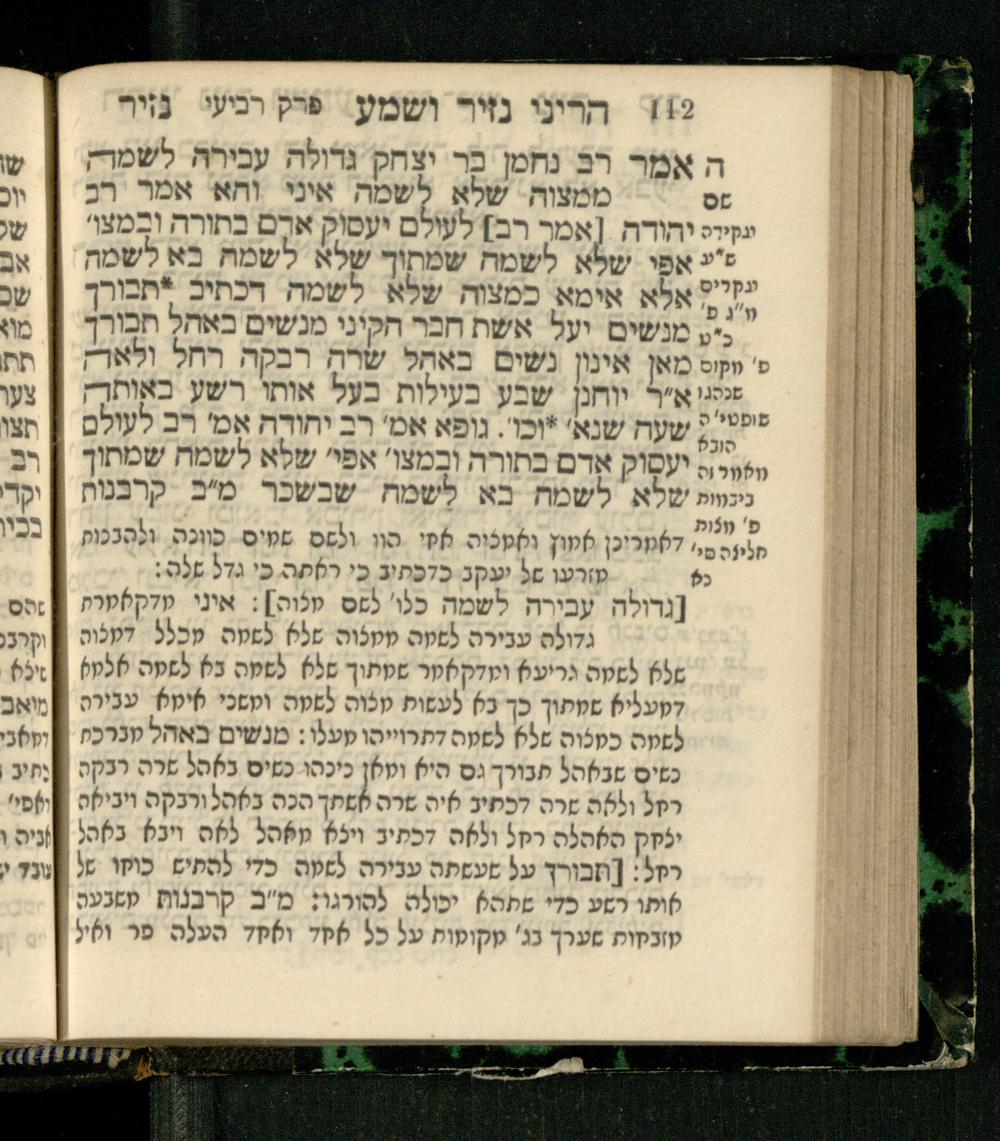 112 הריני נזיר ושמע פרק רביעי נזיר
ה אמר רב נחמן בר יצחק גדולה עבירה לשמה
ממצוה שלא לשמה איני והא אמר רב
יהודה [אמר רב] לעולם יעסוק אדם בתורה ובמצו׳
אפי שלא לשמה שמתוך שלא לשמה בא לשמה
אלא אימא כמצוה שלא לשמה דכתיב *תבורך
מנשים יעל אשת חבר הקיני מנשים באהל תבורך
מאן אינון נשים באהל שרה רבקה רחל ולאה
א״ר יוחנן שבע בעילות בעל אותו רשע באותה
שעה שנא׳ *וכו׳. גופא אמ׳ רב יהודה אמ׳ רב לעולם
יעסוק אדם בתורה ובמצו׳ אפי׳ שלא לשמה שמתוך
שלא לשמה בא לשמה שבשכר מ״ב קרבנות
דאמרינן אמון ואמניה אחי הוו ולשם שמים כוונה ולהבנות
מזרעו של יעקב כדכתיב כי ראתה כי גדל שלה:
[גדולה עבירה לשמה כלו׳ לשם מצוה]: איני מדקאמרת
גדולה עבירה לשמה ממצוה שלא לשמה מכלל דמצוה
שלא לשמה גריעא ומדקאמר שמתוך שלא לשמה בא לשמה אלמא
דמעליא שמתוך כך בא לעשות מצוה לשמה ומשני אימא עבירה
לשמה כמצוה שלא לשמה דתרוייהו מעלו: מנשים באהל מברכת
נשים שבאהל תבורך גם היא ומאן נינהו נשים באהל שרה רבקה
רחל ולאה שרה דכתיב איה שרה אשתך הנה באהל ורבקה ויביאה
יצחק האהלה רחל ולאה דכתיב ויצא מאהל לאה ויבא באהל
רחל: [תבורך על שעשתה עבירה לשמה כדי להתיש כוחו של
אותו רשע כדי שתהא יכולה להורגו: מ״ב קרבנות משבעה
מזבחות שערך בג׳ מקומות על כל אחד ואחד העלה פר ואיל
שם
ש״ע
מ״ג פ׳
כ״ע
פ׳ מקום
שנהגו
שופטי׳ ה
הובא
מאמר זה
ביבמות
פ׳ מצות
חליצה סי׳
כא